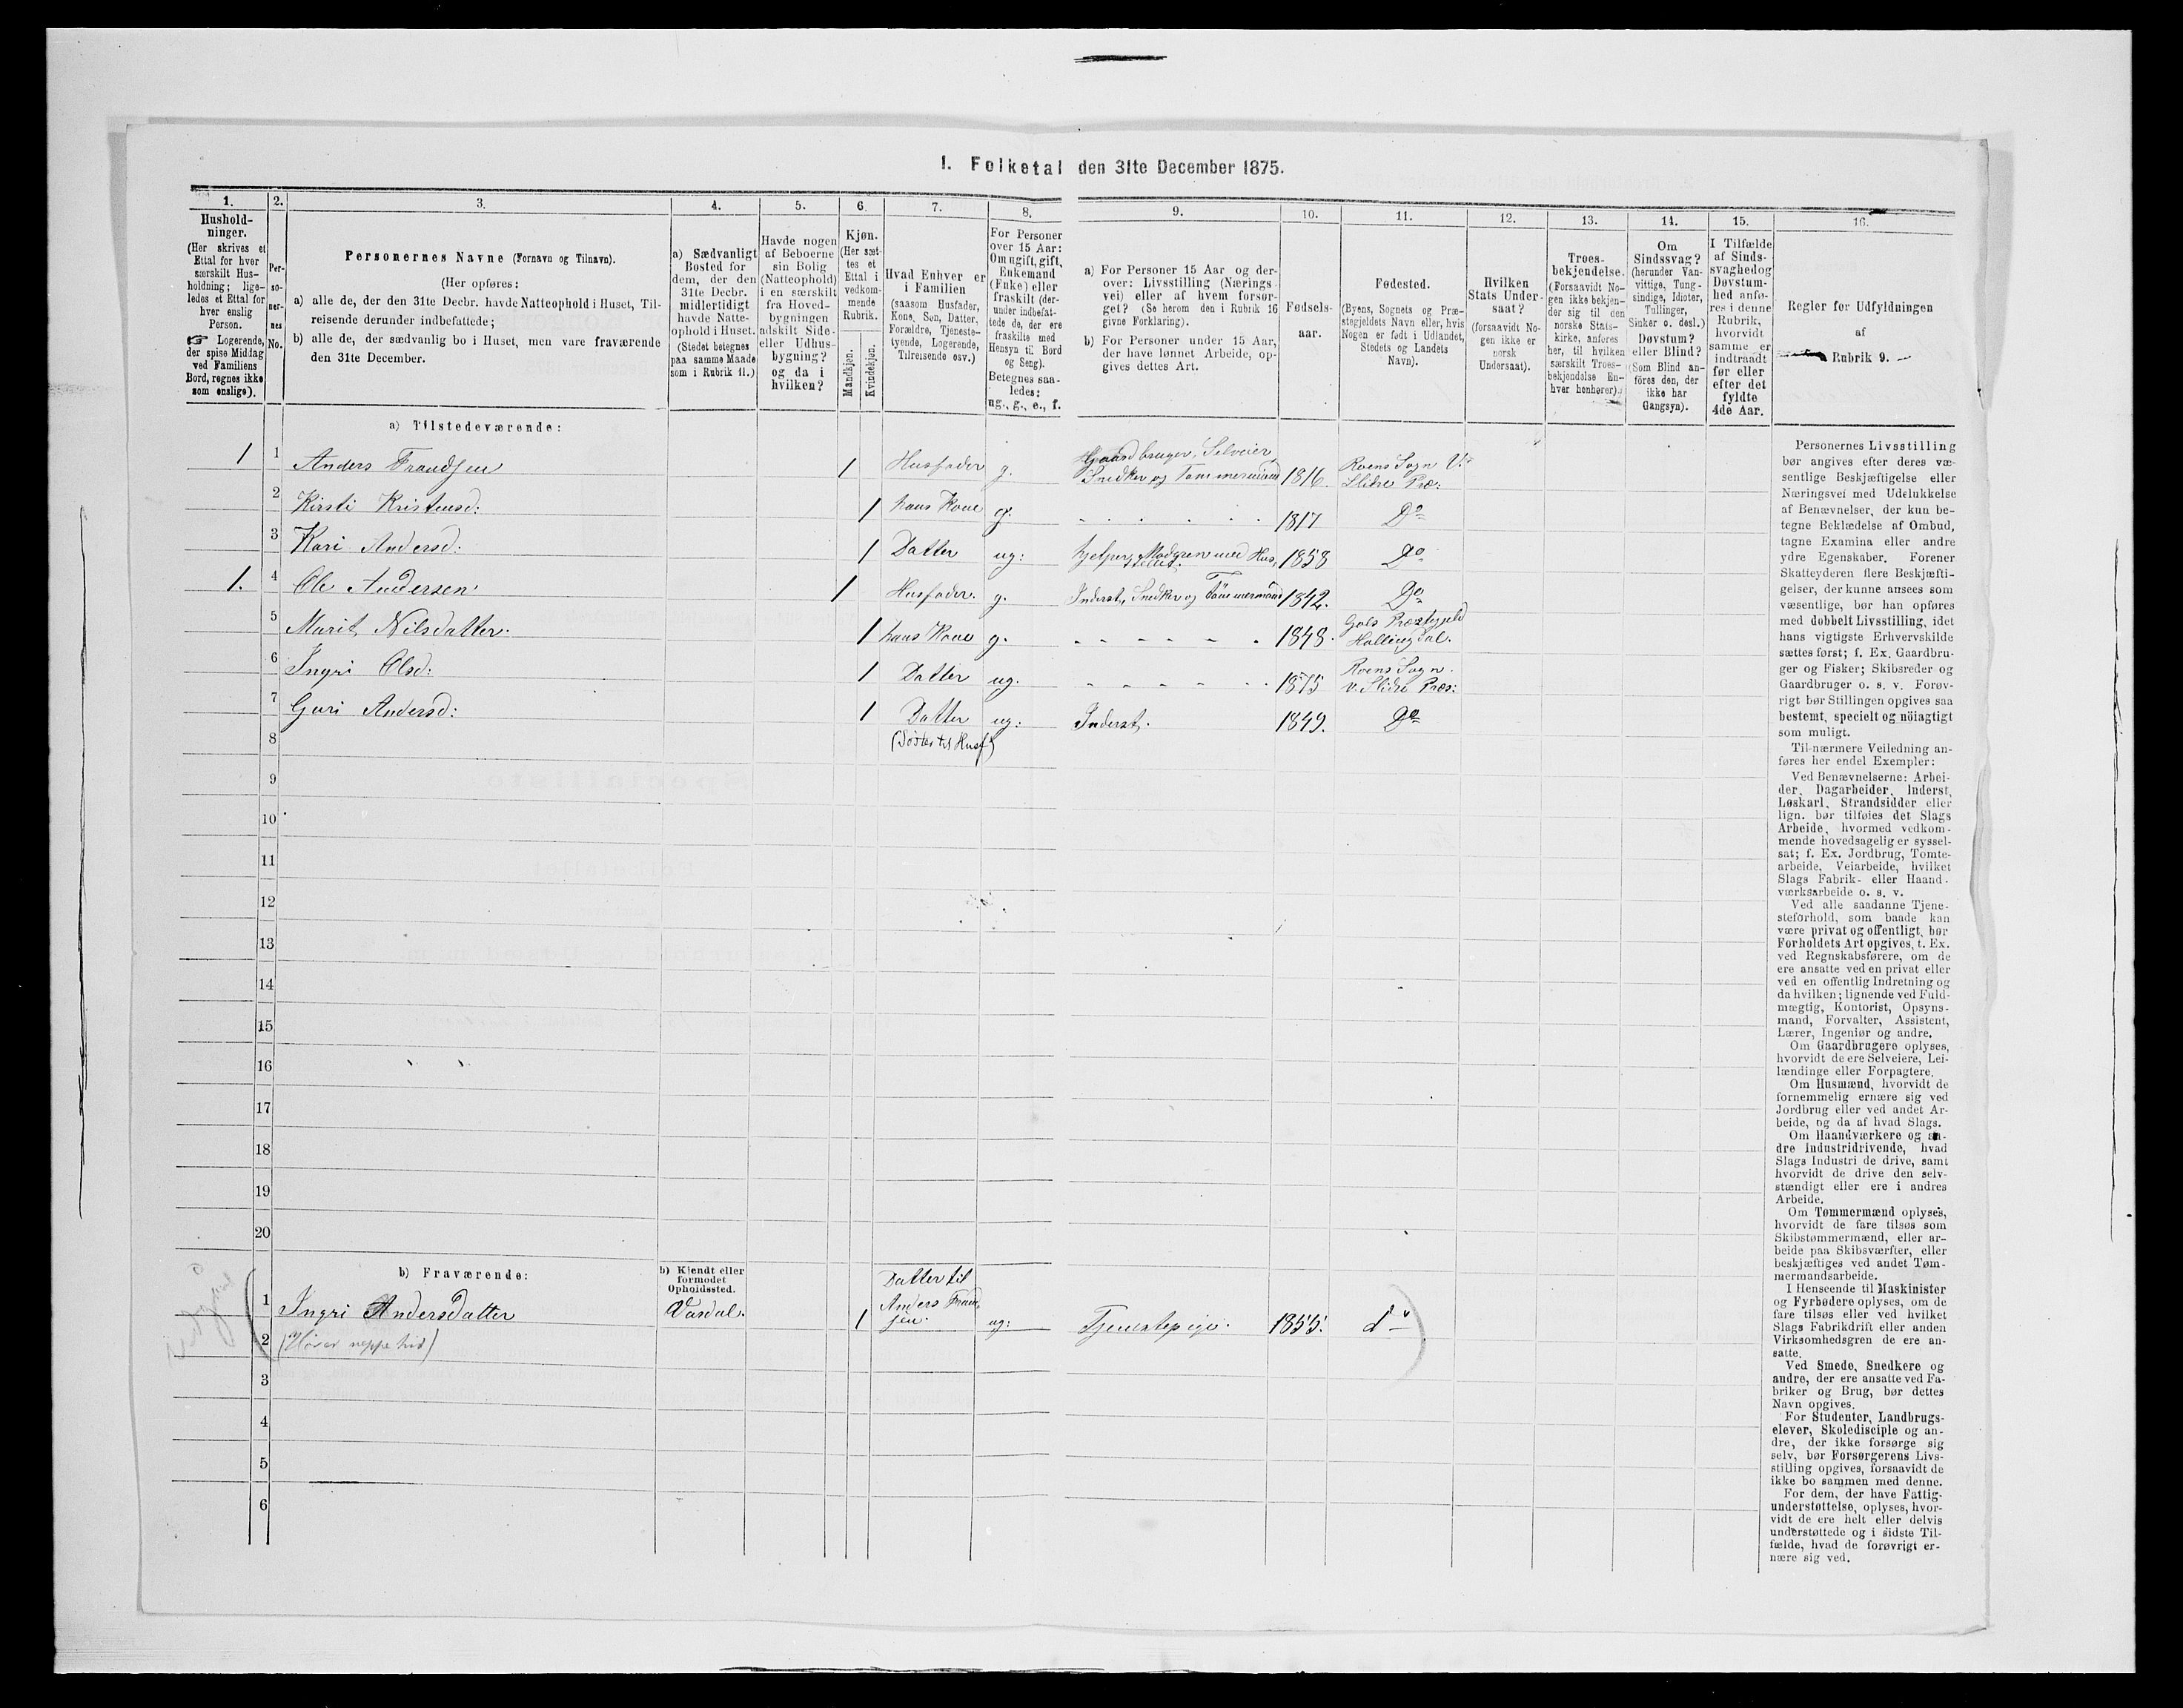 I. Folketal den 31te December 1875.
1. 2. 3. 4. 5. 6. 7. 8. 9. 10. 11. 12. 13. 14. 15. 16.
Hushold-
ninger.
(Her skrives et
Ettal for hver
særskilt Hus-
holdning; lige-
ledes et Ettal for
hver enslig
Person.
☞ Logerende,
der spise Middag
ved Familiens
Bord, regnes ikke
som enslige).
Per-
so-
ner-
nes
No.
Personernes Navne (Fornavn og Tilnavn).
(Her opføres:
a) alle de, der den 31te Decbr. havde Natteophold i Huset, Til-
reisende derunder indbefattede;
b) alle de, der sædvanlig bo i Huset, men vare fraværende
den 31te December.
a) Sædvanligt
Bosted for
dem, der den
31te Decbr.
midlertidigt
havde Natte-
ophold i Huset.
(Stedet betegnes
paa samme Maade
som i Rubrik 11.)
Havde nogen
af Beboerne
sin Bolig
(Natteophold)
i en særskilt
fra Hoved-
bygningen
adskilt Side-
eller Udhus-
bygning?
og da i
hvilken?
Kjøn.
(Her sæt-
tes et
Ettal i
vedkom-
mende
Rubrik.
Mandkjøn.
Kvindekjøn.
Hvad Enhver er
i Familien
(saasom Husfader,
Kone, Søn, Datter,
Forældre, Tjeneste-
tyende, Logerende,
Tilreisende osv.)
For Personer
over 15 Aar:
Om ugift, gift,
Enkemand
(Enke) eller
fraskilt (der-
under indbefat-
tede de, der ere
fraskilte med
Hensyn til Bord
og Seng).
Betegnes saa-
ledes:
ug., g., e., f.
a) For Personer 15 Aar og der-
over: Livsstilling (Nærings-
vei) eller af hvem forsør-
get? (Se herom den i Rubrik 16
givne Forklaring).
b) For Personer under 15 Aar,
der have lønnet Arbeide, op-
gives dettes Art.
Fødsels-
aar.
Fødested.
(Byens, Sognets og Præ-
stegjeldets Navn eller, hvis
Nogen er født i Udlandet,
Stedets og Landets
Navn).
Hvilken
Stats Under-
saat?
(forsaavidt No-
gen ikke er
norsk
Undersaat).
Troes-
bekjendelse.
(Forsaavidt No-
gen ikke bekjen-
der sig til den
norske Stats-
kirke, anføres
her, til hvilken
særskilt Troes-
bekjendelse En-
hver henhører).
Om
Sindssvag?
(herunder Van-
vittige, Tung-
sindige, Idioter,
Tullinger,
Sinker o. desl.)
Døvstum?
eller Blind?
(Som Blind an-
føres den, der
ikke har
Gangsyn).
I Tilfælde
af Sinds-
svaghed og
Døvstum-
hed anfø-
res i denne
Rubrik,
hvorvidt
samme er
indtraadt
før eller
efter det
fyldte
4de Aar.
Regler for Udfyldningen
af
Rubrik 9.
a) Tilstedeværende:
1 1 Anders Frandsen 1 Husfader g. Gaardbruger, Selveier, Snedker og Tømmermand 1816. Roens Sogn V. Slidre Præ:
2 Kirsti Kristensd: 1 hans Kone g. 1817 Do
3 Kari Andersd: 1 Datter ug: hjelper Modgren med Hus, stellet. 1858 Do
1. 4 Ole Andersen 1 Husfader. g. Inderst, Snedker og Tømmermand 1842. Do
5 Marit Nilsdatter. 1 hans Kone g. 1848. Gols Præstgjeld Hallingdal.
6 Ingri Olsd: 1 Datter ug. 1875 Roens Sogn V. Slidre Præs:
7 Guri Andersd: 1 Datter ug: Inderst. 1849. Do
8 (Søster til Husf)
9
10
11
12
13
14
15
16
17
18
19
20
b) Fraværende:
b) Kjendt eller
formodet
Opholdssted.
1 Ingri Andersdatter Vasdal. 1 Datter til Anders Frandsen. ug: Tjenestepige. 1855. do
2 (Hører neppe hid)
3
4
5
6
Personernes Livsstilling
bør angives efter deres væ-
sentlige Beskjæftigelse eller
Næringsvei med Udelukkelse
af Benævnelser, der kun be-
tegne Beklædelse af Ombud,
tagne Examina eller andre
ydre Egenskaber. Forener
Skatteyderen flere Beskjæfti-
gelser, der kunne ansees som
væsentlige, bør han opføres
med dobbelt Livsstilling, idet
hans vigtigste Erhvervskilde
sættes først; f. Ex. Gaardbru-
ger og Fisker; Skibsreder og
Gaardbruger o. s. v. Forøv-
rigt bør Stillingen opgives saa
bestemt, specielt og nöiagtigt
som muligt.
Til nærmere Veiledning an-
føres her endel Exempler:
Ved Benævnelserne: Arbei-
der, Dagarbeider, Inderst,
Løskarl, Strandsidder eller
lign. bør tilføies det Slags
Arbeide, hvormed vedkom-
mende hovedsagelig er syssel-
sat; f. Ex. Jordbrug, Tomte-
arbeide, Veiarbeide, hvilket
Slags Fabrik- eller Haand-
værksarbeide o. s. v.
Ved alle saadanne Tjene-
steforhold, som baade kan
være privat og offentligt, bør
Forholdets Art opgives, t. Ex.
ved Regnskabsførere, om de
ere ansatte ved en privat eller
ved en offentlig Indretning og
da hvilken; lignende ved Fuld-
mægtig, Kontorist, Opsyns-
mand, Forvalter, Assistent,
Lærer, Ingeniør og andre.
Om Gaardbrugere oplyses,
hvorvidt de ere Selveiere, Lei-
lændinge eller Forpagtere.
Om Husmænd, hvorvidt de
fornemmelig ernære sig ved
Jordbrug eller ved andet Ar-
beide, og da af hvad Slags.
Om Haandværkere og an-
dre Industridrivende, hvad
Slags Industri de drive, samt
hvorvidt de drive den selv-
stændigt eller ere i andres
Arbeide.
Om Tømmermænd oplyses,
hvorvidt de fare tilsøs som
Skibstømmermænd, eller ar-
beide paa Skibsværfter, eller
beskjæftiges ved andet Tøm-
mermandsarbeide.
I Henseende til Maskinister
og Fyrbødere oplyses, om de
fare tilsøs eller ved hvilket
Slags Fabrikdrift eller anden
Virksomhedsgren de ere an-
satte.
Ved Smede, Snedkere og
andre, der ere ansatte ved Fa-
briker og Brug, bør dettes
Navn opgives.
For Studenter, Landbrugs-
elever, Skoledisciple og an-
dre, der ikke forsørge sig
selv, bør Forsørgerens Livs-
stilling opgives, forsaavidt de
ikke bo sammen med denne.
For dem, der have Fattig-
understøttelse, oplyses, hvor-
vidt de ere helt eller delvis
understøttede og i sidste Til-
fælde, hvad de forøvrigt er-
nære sig ved.